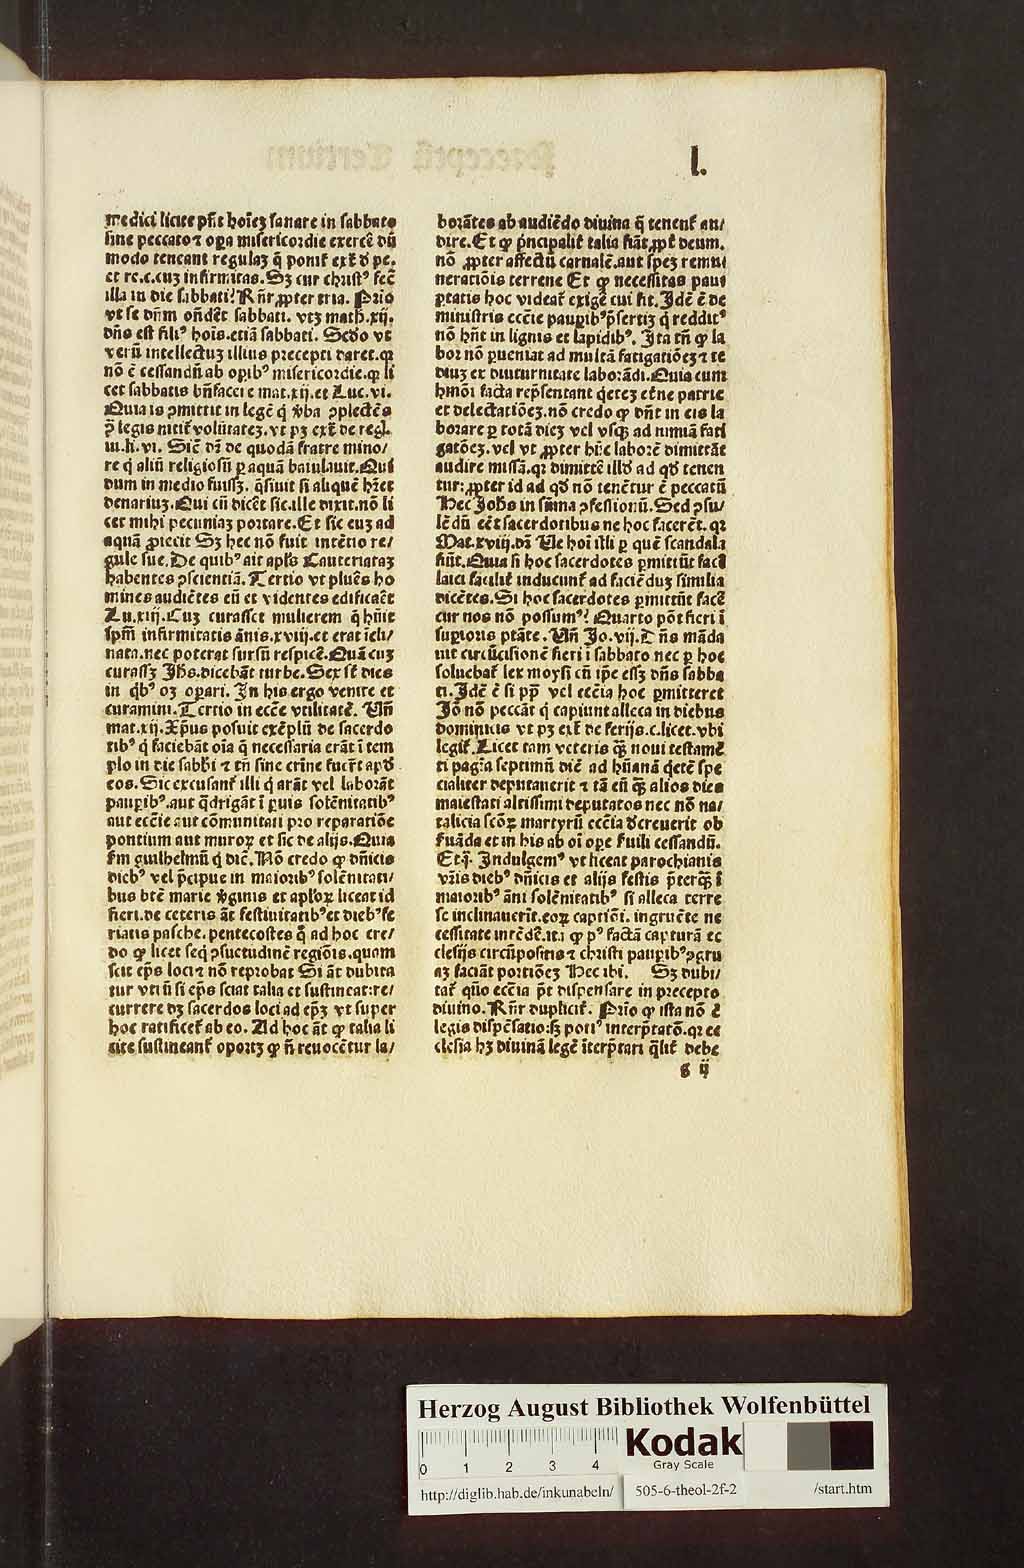 l.
medici licite pn̄t hoīeʒ sanare in sabbato
sine peccato ⁊ oꝑa misericordie exercē dū
modo teneant regulaʒ q̄ ponit᷑ ext᷑ ꝺ pe.
et re.c.cuʒ infirmitas. Sʒ cur christꝰ fec̄
illa in die sabbati? Rn̄r ꝓpter tria. Prīo
vt se dn̄m on̄dēt sabbati. vtʒ math̄.xij.
dn̄s est filiꝰ hoīs.etiā sabbati. Scd̄o vt
verū intellectuʒ illius precepti daret.qꝛ
nō ē cessandū ab oꝑibꝰ misericordie.ꝙ li
cet sabbatis bn̄facere mat.xij.et Luc.vi.
Quia is ꝯmittit in legē q̇ v̄ba ꝯplectēs
ꝯ̄ legis nitit᷑ volūtateʒ.vt pʒ ext᷑ de regl̄.
iu.li.vi. Sic̄ dī de quodā fratre mino/
re q̇ aliū religiosū ꝑ aquā baiulauit.Qui
dum in medio fuissʒ. q̄siuit si aliquē hr̄et
denariuʒ. Qui cū dicēt sic.ille dixit.nō li
cet mihi pecuniaʒ portare. Et sic euʒ ad
aquā ꝓiecit Sʒ hec nō fuit intētio re/
gule sue. De quibꝰ ait apls̄ Cauteriataʒ
habentes ꝯscientiā. Tertio vt plures ho
mines audiētes eū et videntes edificarēt
Lu.xiij. Cuʒ curasset mulierem q̄ hūit
spm̄ infirmitatis ānis.xviij.et erat īcli/
nata.nec poterat sursū respicē. Quā cuʒ
curassʒ Jhs̄.dicebāt turbe. Sex sūt dies
in q̇bꝰ oʒ oꝑari. In his ergo venite et
curamini. Tertio in eccē vtilitatē. Vn̄
mat.xij. Xp̄us posuit exēplū de sacerdo
tibꝰ q̇ faciebāt oīa q̄ necessaria erāt ī tem
plo in die sabbi̅ ⁊ tn̄ sine crīne fuer̄t apd̄
eos. Sic excusant᷑ illi q̇ arāt vel laborāt
pauꝑibꝰ.aut q̄drigāt ī ꝑuis solēnitatibꝰ
aut eccīe aut cōmunitati pro reparatiōe
pontium aut muroꝝ et sic de alijs. Quia
ẜm guilhelmū q̇ dic̄. Nō credo ꝙ dn̄icis
diebꝰ vel p̄cipue in maioribꝰ solēnitati/
bus btē marie v̄ginis et aploꝝ liceat id
fieri.de ceteris āt festiuitatibꝰ et diebꝰ fe
riatis pasche. pentecostes q̄ ad hoc cre/
do ꝙ licet seq̇ ꝯsuetudinē regiōis.quam
scit ep̄s loci ⁊ nō reprobat Si āt dubita
tur vtrū si ep̄s sciat talia et sustineat:re/
currere dʒ sacerdos loci ad ep̄ʒ vt super
hoc ratificet᷑ ab eo. Ad hoc āt ꝙ talia li
cite sustineant᷑ oportʒ ꝙ n̄ reuocētur la/
borātes ab audiēdo diuina q̄ tenent᷑ au/
dire. Et ꝙ p̄ncipalit᷑ talia fiāt ꝓpt᷑ deum.
nō ꝓpter affectū carnalē.aut speʒ remu
nerationis terrene Et ꝙ necessitas pau
ꝑtatis hoc videat᷑ exigē cui fit. Idē ē de
ministris eccīe pauꝑibꝰ p̄sertiʒ q̇ redditꝰ
nō hn̄t in lignis et lapidibꝰ. Ita tn̄ ꝙ la
bor nō ꝑueniat ad multā fatigatiōeʒ ⁊ te
diuʒ ex diuturnitate laborādi. Quia cum
hmōi facta rep̄sentant q̇eteʒ et̄ne patrie
et delectatiōeʒ.nō credo ꝙ dn̄t in eis la
borare ꝑ totā dieʒ vel vsqʒ ad nimiā fati
gatōeʒ.vel vt ꝓpter hūc laborē dimittāt
audire missā.qꝛ dimittē illd̄ ad qd̄ tenen
tur: ꝓpter id ad qd̄ nō tenētur ē peccatū
Hec Johs̄ in sūma ꝯfessionū. Sed ꝯsu/
lēdū eēt sacerdotibus ne hoc facerēt. qꝛ
Mat.xviij.dī Ve hoī illi ꝑ quē scandala
fiūt. Quia si hoc sacerdotes ꝑmittūt facī
laici facilit᷑ inducunt᷑ ad faciēduʒ similia
dicētes. Si hoc sacerdotes ꝑmittūt facē
cur nos nō possumꝰ? Quarto pōt fieri ī
suꝑioris ptāte. Vn̄ Jo.vij. Dn̄s māda
uit circūcisionē fieri ī sabbato nec ꝑ hoc
soluebat᷑ lex moysi cū ip̄e essʒ dn̄s sabba
ti. Idē ē si pp̄ vel eccīa hoc ꝑmitteret
Jō nō peccāt q̇ capiunt alleca in diebus
dominicis vt pʒ ext᷑ de ferijs.c.licet.vbi
legit᷑. Licet tam veteris qꝫ̄ noui testamē
ti pagīa septimū diē ad hūanā q̇etē spe
cialiter deputauerit ⁊ tā eū qꝫ̄ alios dies
maiestati altissimi deputatos nec nō na/
talicia sc̄oꝝ martyrū eccīa ꝺcreuerit ob
ẜuāda et in his ab oī oꝑe ẜuili cessandū.
Et.j̄. Indulgemꝰ vt liceat parochianis
vr̄is diebꝰ dn̄icis et alijs festis p̄terqꝫ̄ ī
maioribꝰ āni solēnitatibꝰ si alleca terre
se inclinauerīt.eoꝝ captiōi. ingruēte ne
cessitate intēdē.ita ꝙ pꝰ factā capturā ec
clesijs circūpositis ⁊ christi pauꝑibꝰ ꝯgru
aʒ faciāt portiōeʒ Hec ibi. Sʒ dubi/
tat᷑ quō eccīa pōt dispensare in precepto
diuino. Rn̄r duplicit᷑. Prīo ꝙ ista nō ē
legis dispēsatio:sʒ potiꝰ interp̄tatō.qꝛ ec
clesia hʒ diuinā legē īterp̄tari q̄lit᷑ debe
g ij
Herzog August Bibliothek Wolfenbüttel
0 1 2 3 4
Kodak
Gray Scale
http://diglib.hab.de/inkunabeln/ 505-6-theol-2f-2 /start.htm